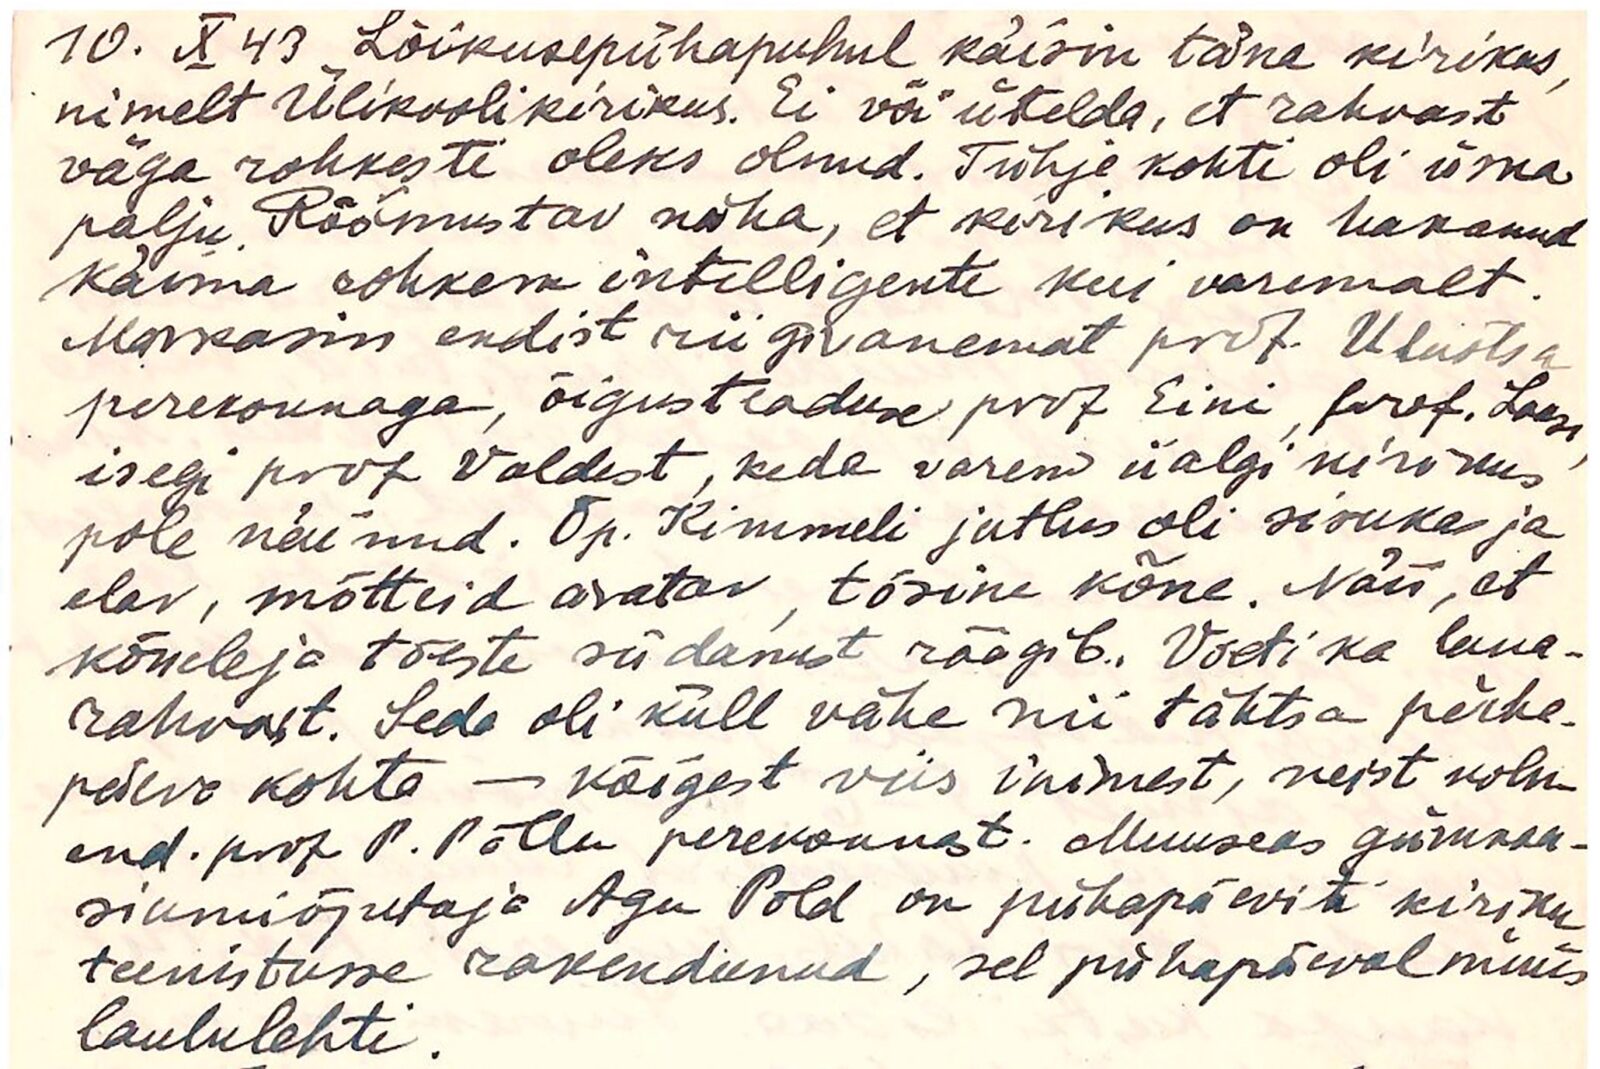 10. X 43 Lõikusepühapuhul käisin täna kirikus,
nimelt Ülikoolikirikus. Ei või ütelda, et rahvast
väga rohkesti oleks olnud. Tühje kohti oli üsna
palju. Rõõmustav näha, et kirikus on hakanud
käima rohkem intelligente kui varemalt.
Markasin endist riigivanemat prof. Uluotsa
perekonnaga, õigusteaduse prof Eini, prof.
isegi prof Valdest, keda varem üalgi kirikus
pole näinud. Õp. Kimmeli jutlus oli sisukas ja
elav, mõtteid äratav, tõsine kõne. Näis, et
kõneleja tõeste südamest räägib. Voeti ka laua-
rahvast. Seda oli küll vähe nii tähtsa pühe-
päeva kohta — kõigest viis inimest, neist kolm
end. prof P. Põllu perekonnast. Muuseas gümnaa-
siumiõpetaja Agu Põld on pühapäeviti kiriku
teenistusse rakendunud, sel pühapäeval müüs
laululehti.